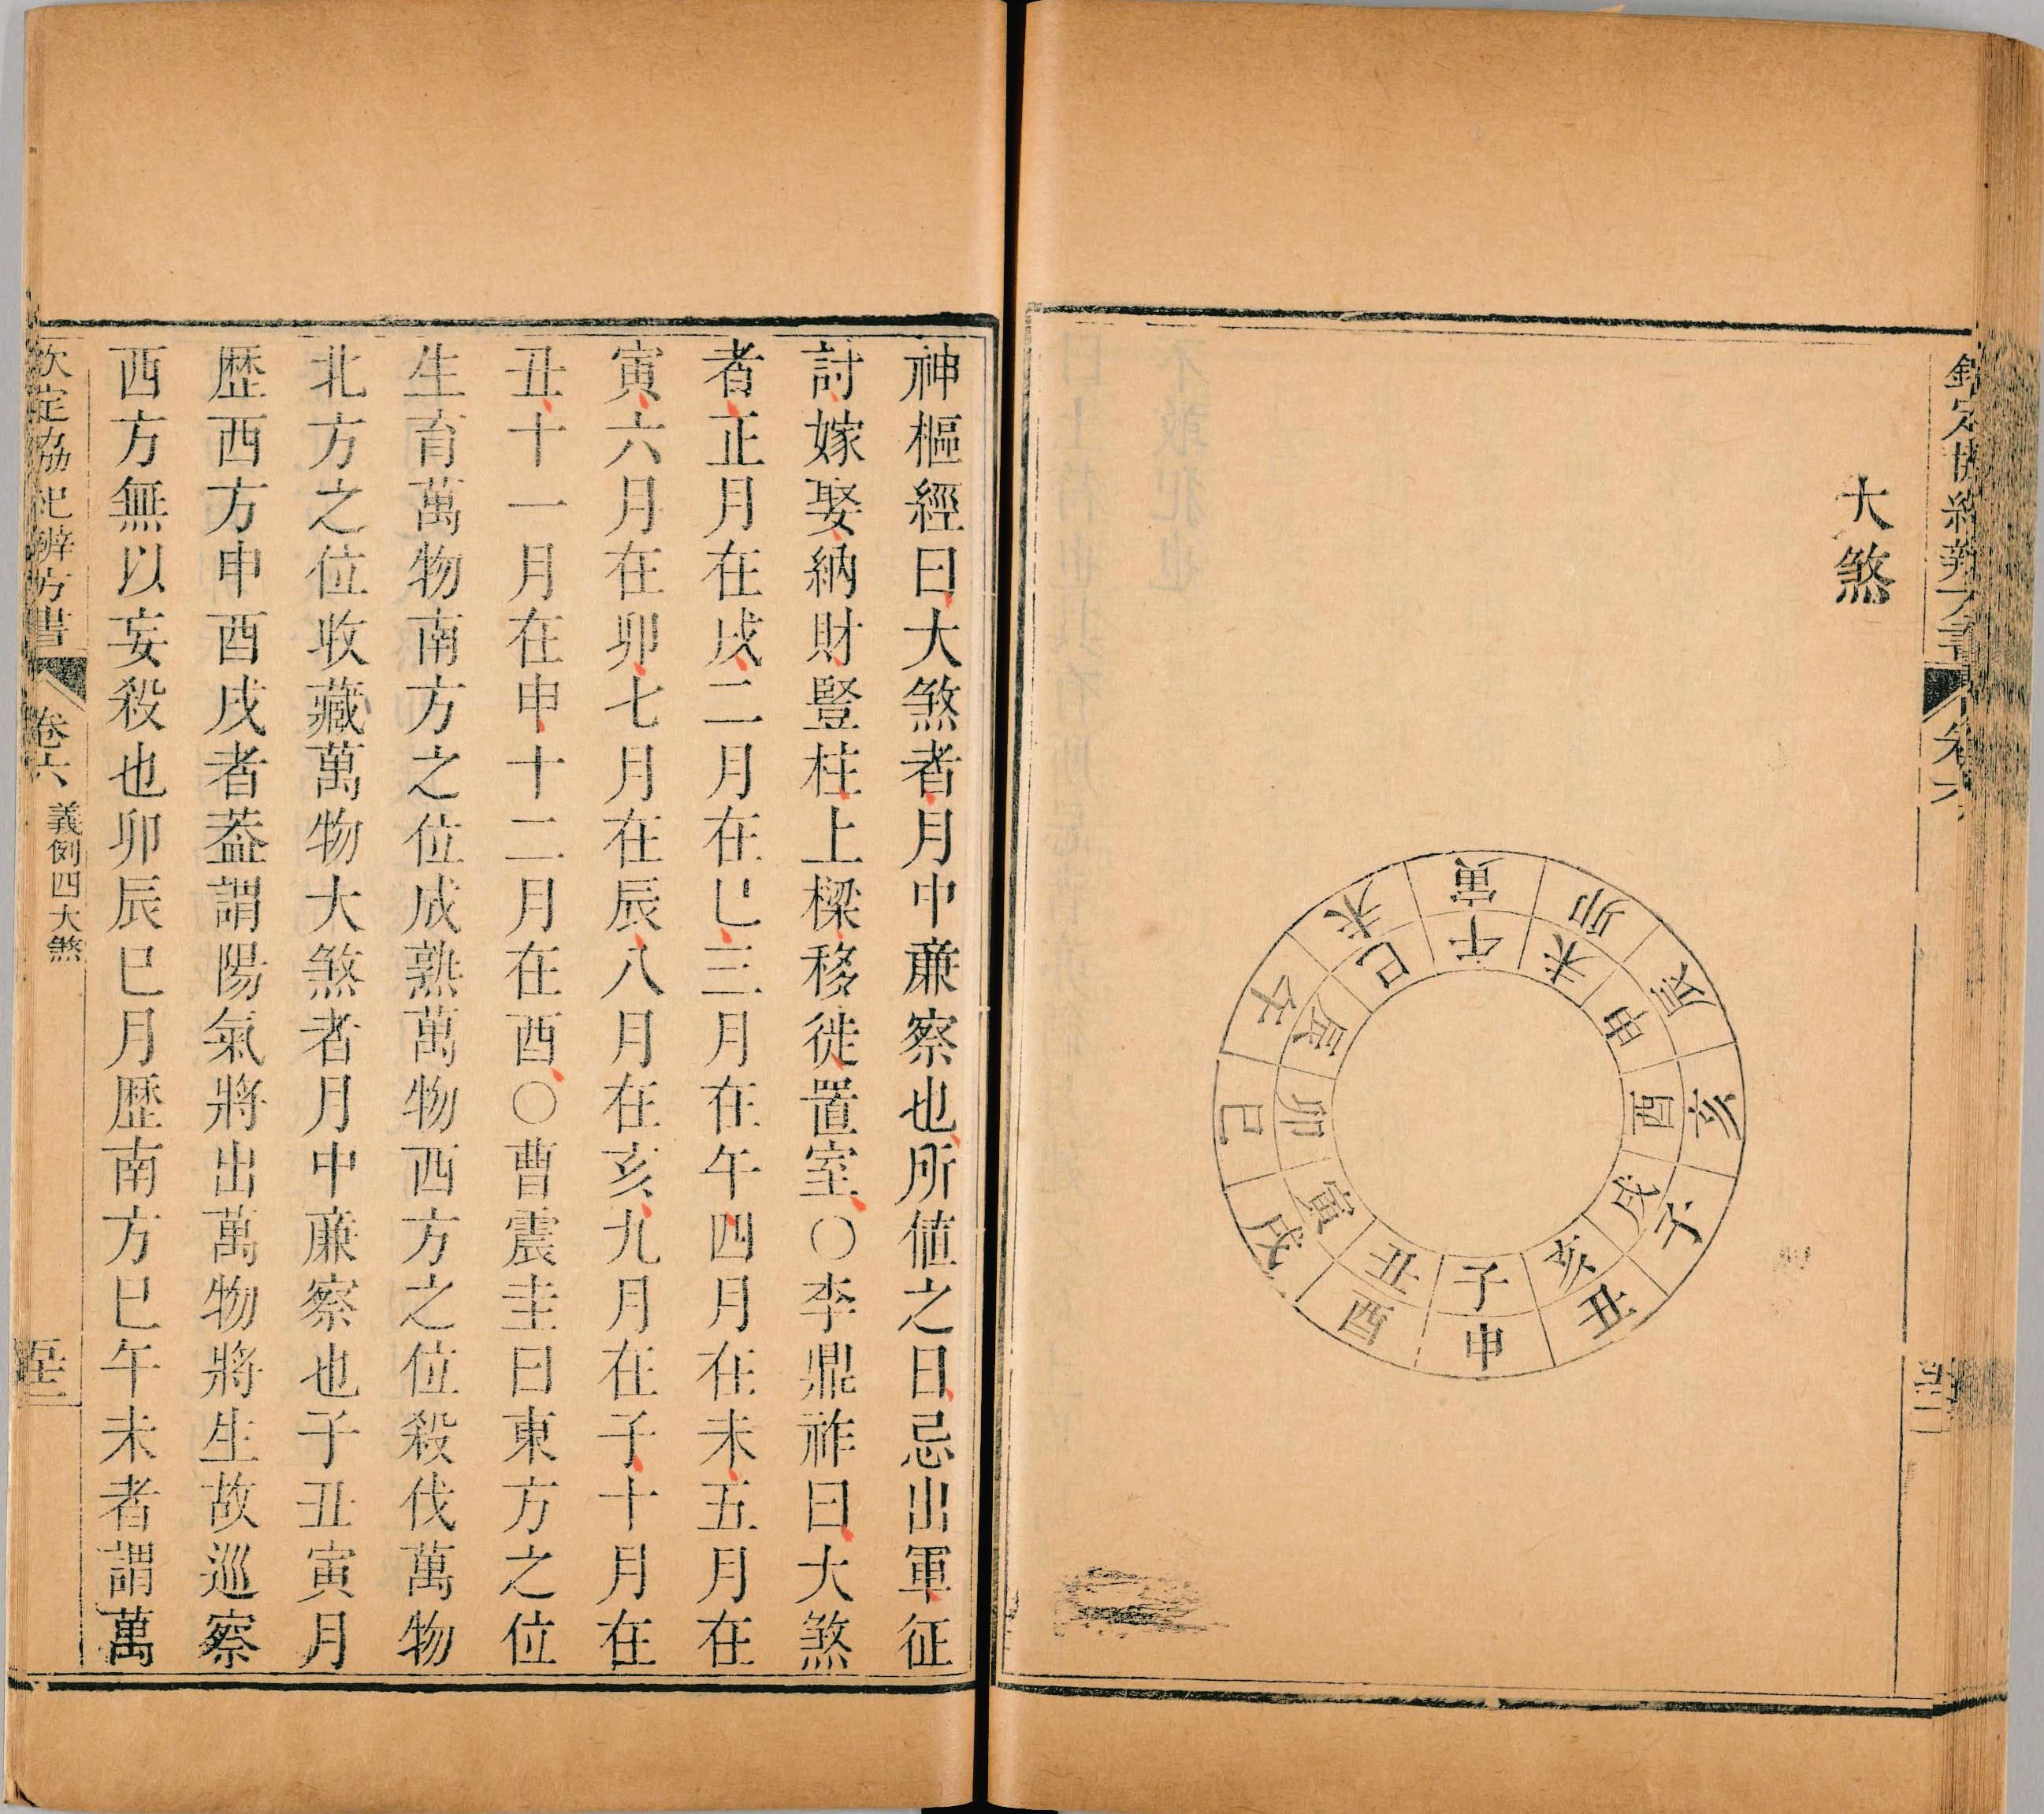 欽定協紀辨方書 卷六
大煞
寅卯辰亥子丑申酉戌巳午未
午未申酉戌亥子丑寅卯辰巳
神樞經曰大煞者月中亷察也所值之日忌出軍征
討嫁娶納財豎柱上樑移徙置室〇李鼎祚曰大煞
者正月在戌二月在巳三月在午四月在未五月在
寅六月在卯七月在辰八月在亥九月在子十月在
丑十一月在申十二月在酉〇曹震圭曰東方之位
生育萬物南方之位成熟萬物西方之位殺伐萬物
北方之位收藏萬物大煞者月中亷察也子丑寅月
歴西方申酉戌者葢謂陽氣將出萬物將生故巡察
西方無以妄殺也卯辰巳月歴南方巳午未者謂萬
欽定協紀辨方書 卷六 義例四大煞